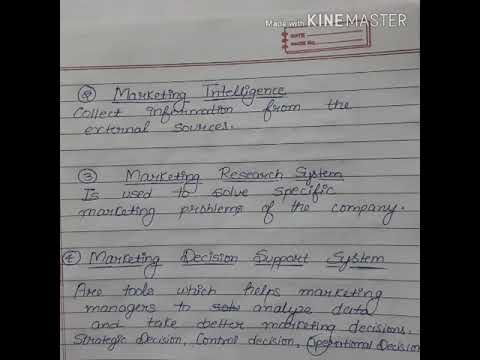 Made with KINEMASTER
DATE
PAGE No.
② Marketing Intelligence
Collect information from the
external sources.
③ Marketing Research System
Is used to solve specific
marketing problems of the company.
④ Marketing Decision Support System
Are tools which helps marketing
managers to analyze data
and take better marketing decisions.
Strategic Decision, Control decision, Operational Decision